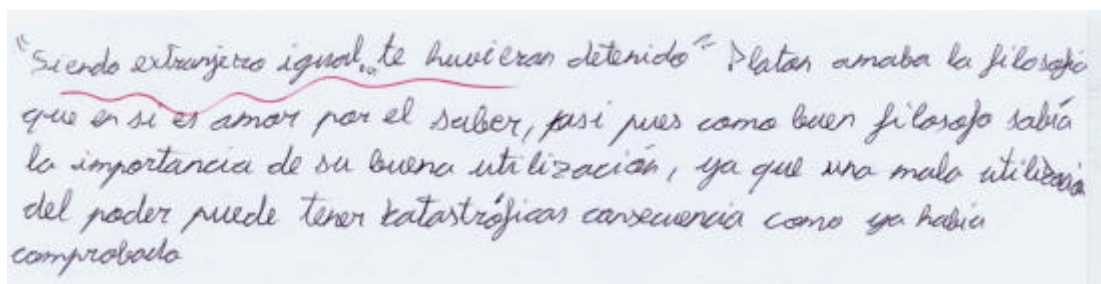 "Siendo extranjero igual... te huvieran detenido" Platon amaba la filosofia
que en si es amor por el saber, asi pues como buen filosofo sabía
la importancia de su buena utilización, ya que una mala utilización
del poder puede tener katastróficas consecuencia como ya habia
comprobado